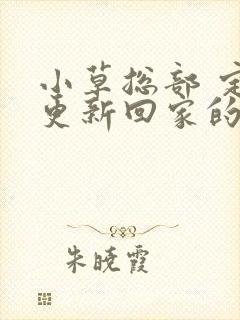 小草总部
更新回家的
朱晓霞